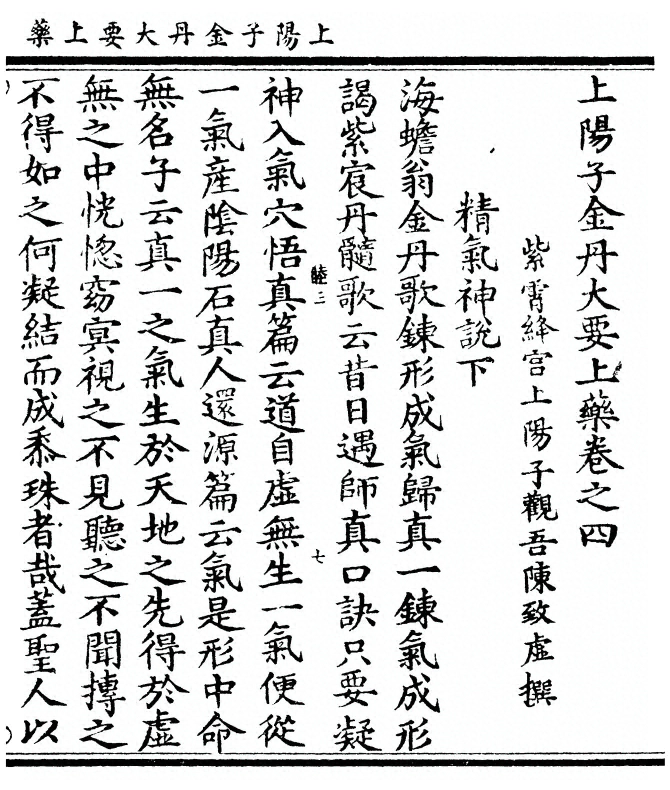 上陽子金丹大要上藥
上陽子金丹大要上藥卷之四
紫霄絳宮上陽子觀吾陳致虛撰
精氣神說下
海蟾翁金丹歌鍊形成氣歸真一鍊氣成形
謁紫宸丹髓歌云昔日遇師真口訣只要凝
睦三
七
神入氣穴悟真篇云道自虛無生一氣便從
一氣產陰陽石真人還源篇云氣是形中命
無名子云真一之氣生於天地之先得於虛
無之中恍惚窈冥視之不見聽之不聞摶之
不得如之何凝結而成黍珠者哉蓋聖人以